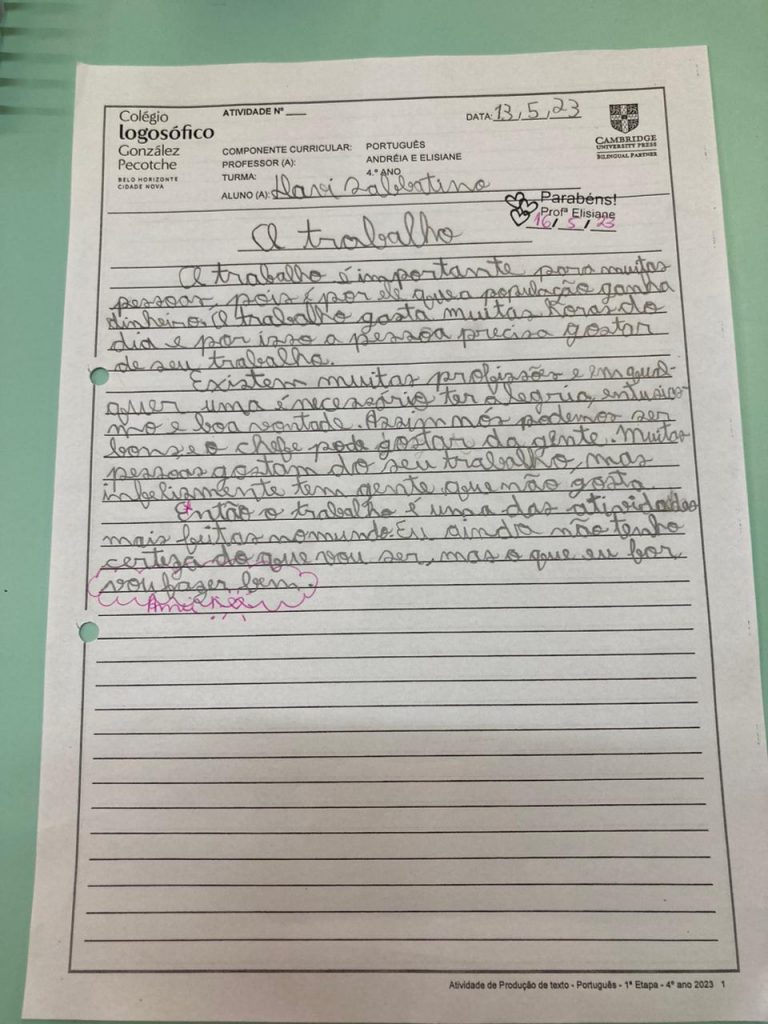 Colégio
logosófico
González
Pecotche
BELO HORIZONTE
CIDADE NOVA
ATIVIDADE Nº
DATA: 13, 5, 23
COMPONENTE CURRICULAR: PORTUGUÊS
PROFESSOR (A): ANDRÉIA E ELISIANE
TURMA: 4.º ANO
ALUNO (A): Davi Sabbatino
CAMBRIDGE
UNIVERSITY PRESS
BILINGUAL PARTNER
Parabéns!
Profª Elisiane
16/ 5 / 23
O trabalho
O trabalho é importante para muitas
pessoas, pois é por ele que a população ganha
dinheiro. O trabalho gasta muitas horas do
dia e por isso a pessoa precisa gostar
de seu trabalho.
Existem muitas profissões e em qual-
quer uma é necessário ter alegria, entusias-
mo e boa vontade. Assim nós podemos ser
bons e o chefe pode gostar da gente. Muitas
pessoas gostam do seu trabalho, mas
infelizmente tem gente que não gosta.
Então o trabalho é uma das atividades
mais feitas no mundo. Eu ainda não tenho
certeza do que vou ser, mas o que eu for,
vou fazer bem.
Atividade de Produção de texto - Português - 1ª Etapa - 4º ano 2023 1